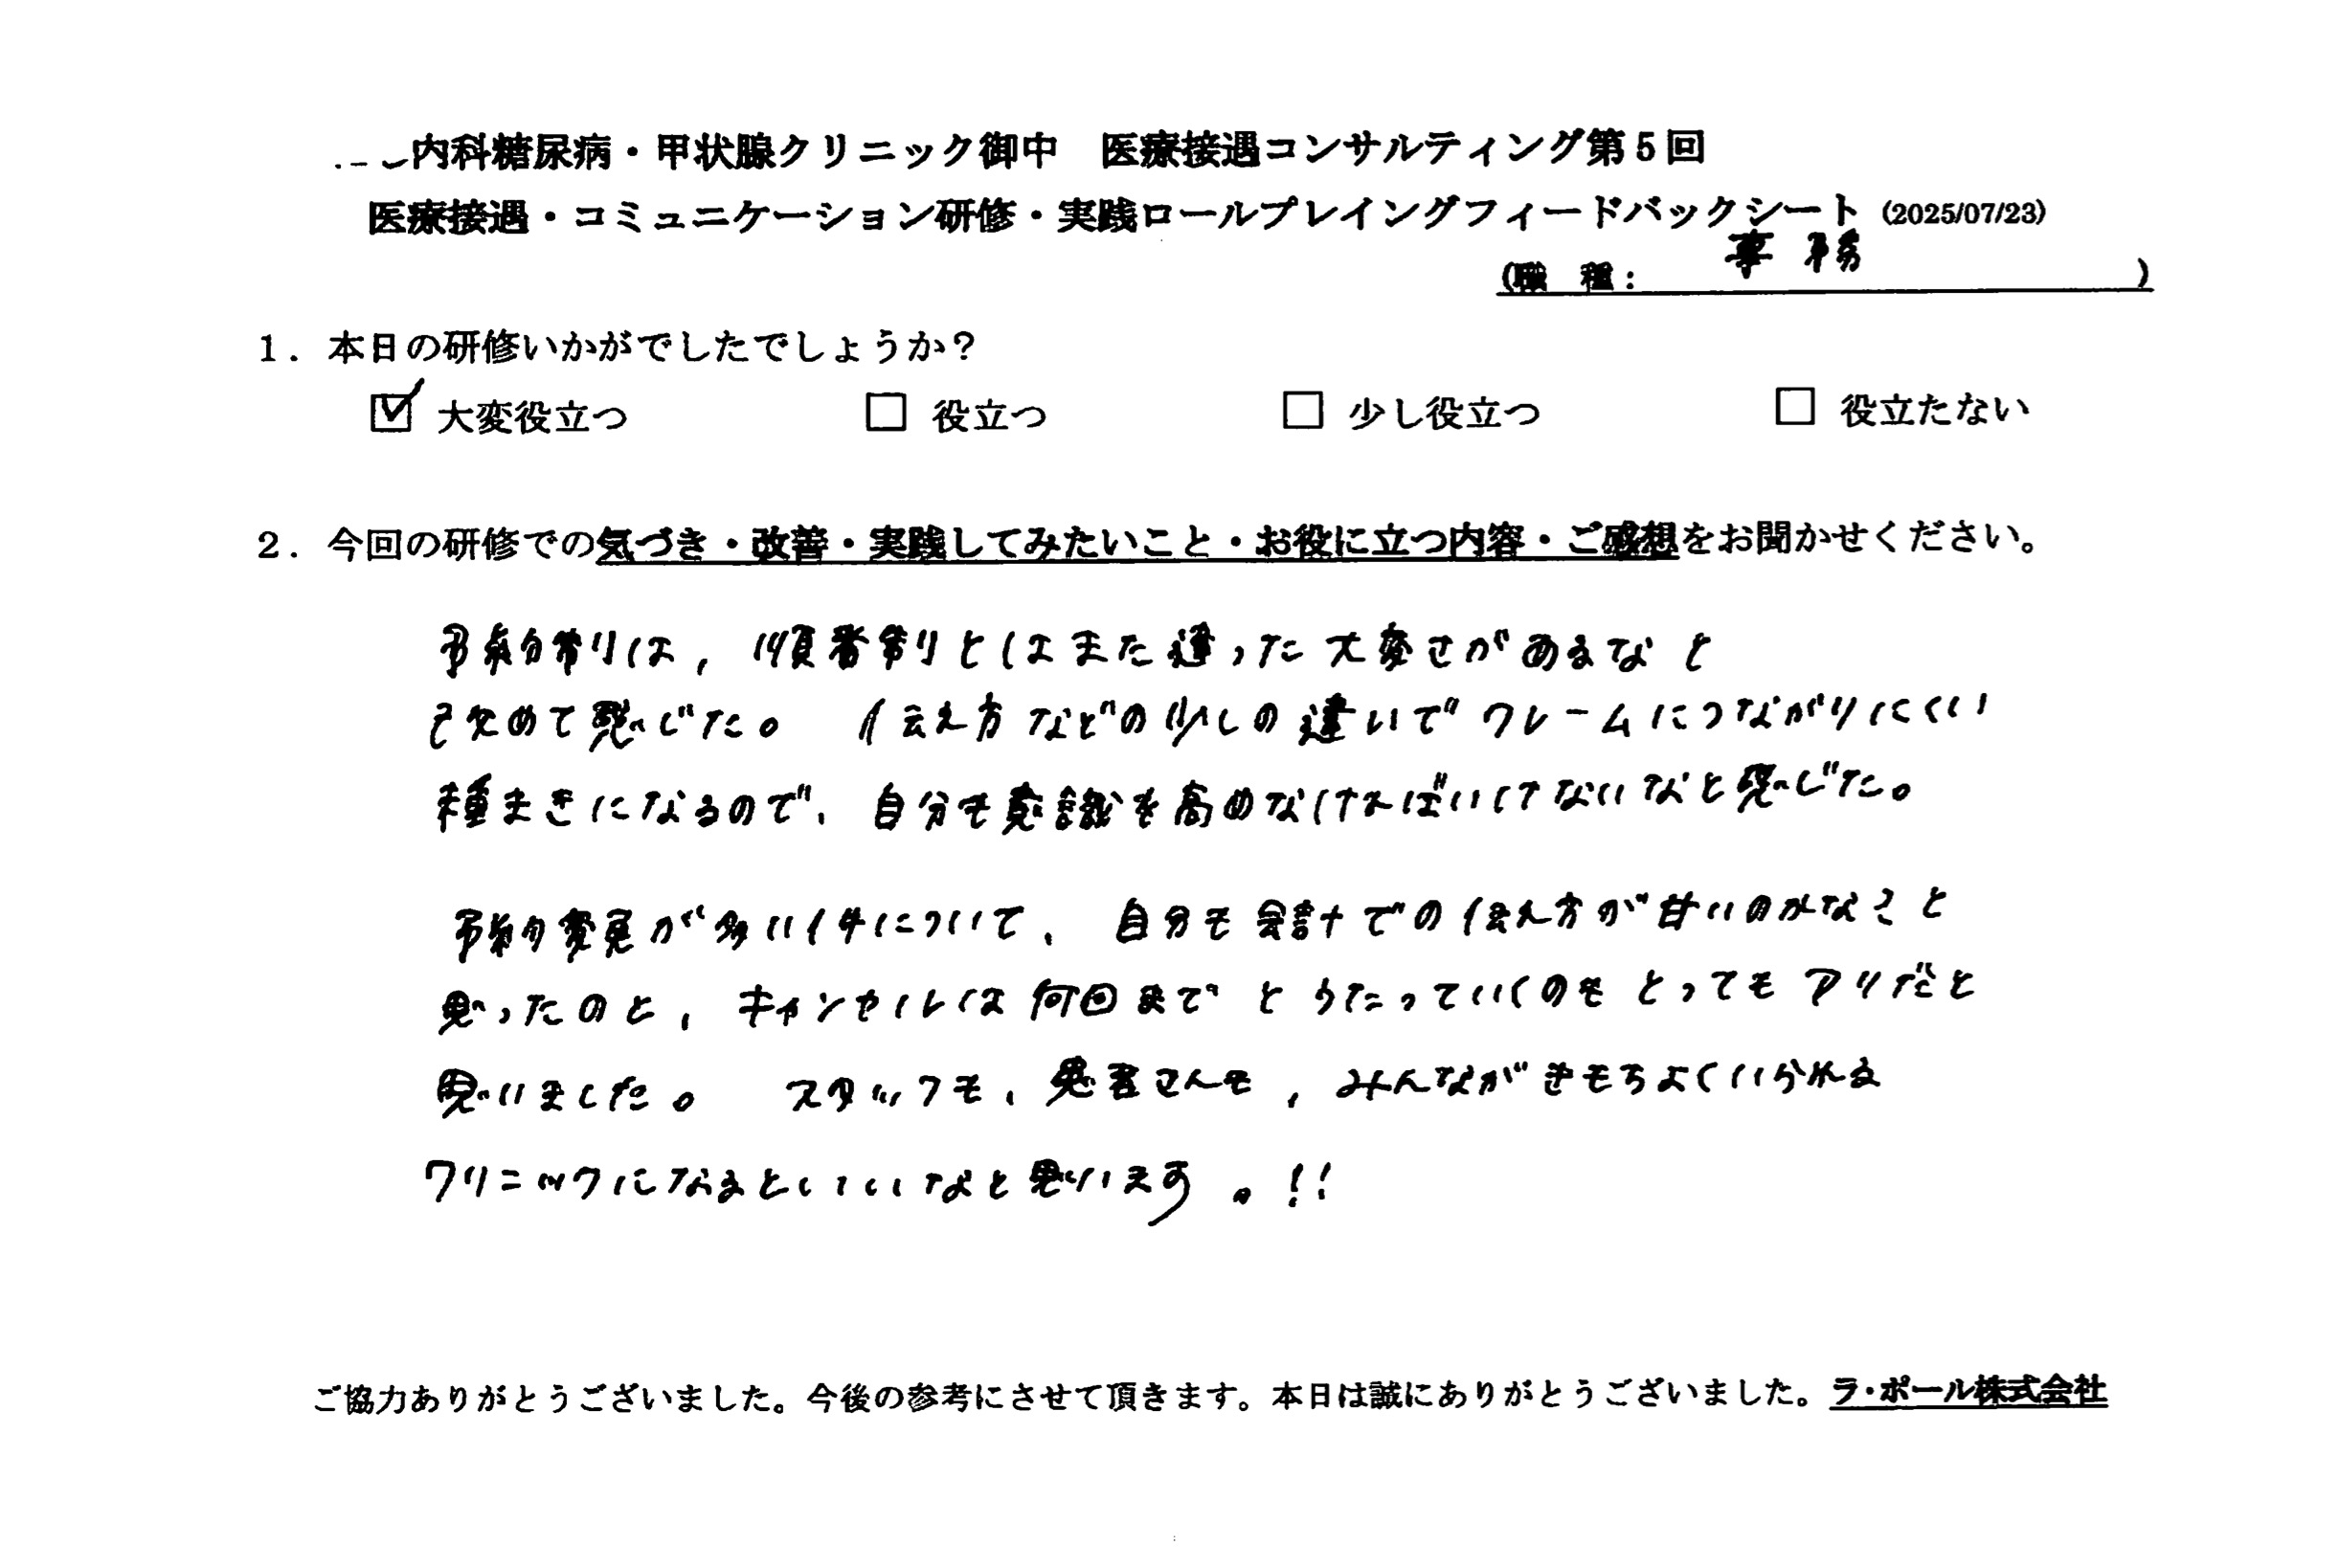 内科糖尿病・甲状腺クリニック御中 医療接遇コンサルティング第5回
医療接遇・コミュニケーション研修・実践ロールプレイングフィードバックシート (2025/07/23)
(職 種: 事務 )
1. 本日の研修いかがでしたでしょうか?
☑ 大変役立つ □ 役立つ □ 少し役立つ □ 役立たない
2. 今回の研修での気づき・改善・実践してみたいこと・お役に立つ内容・ご感想をお聞かせください。
予約制は、順番制とはまた違った大変さがあるなと
改めて感じた。 伝え方などの少しの違いでクレームにつながりにくい
種まきになるので、自分も意識を高めなければいけないなと感じた。
予約変更が多い件について、自分も会計での伝え方が甘いのかなと
思ったのと、キャンセルは何回までとうたっていくのもとってもアリだと
思いました。 スタッフも、患者さんも、みんながきもちよくいられる
クリニックになるといいなと思います。!!
ご協力ありがとうございました。今後の参考にさせて頂きます。本日は誠にありがとうございました。ラ・ポール株式会社